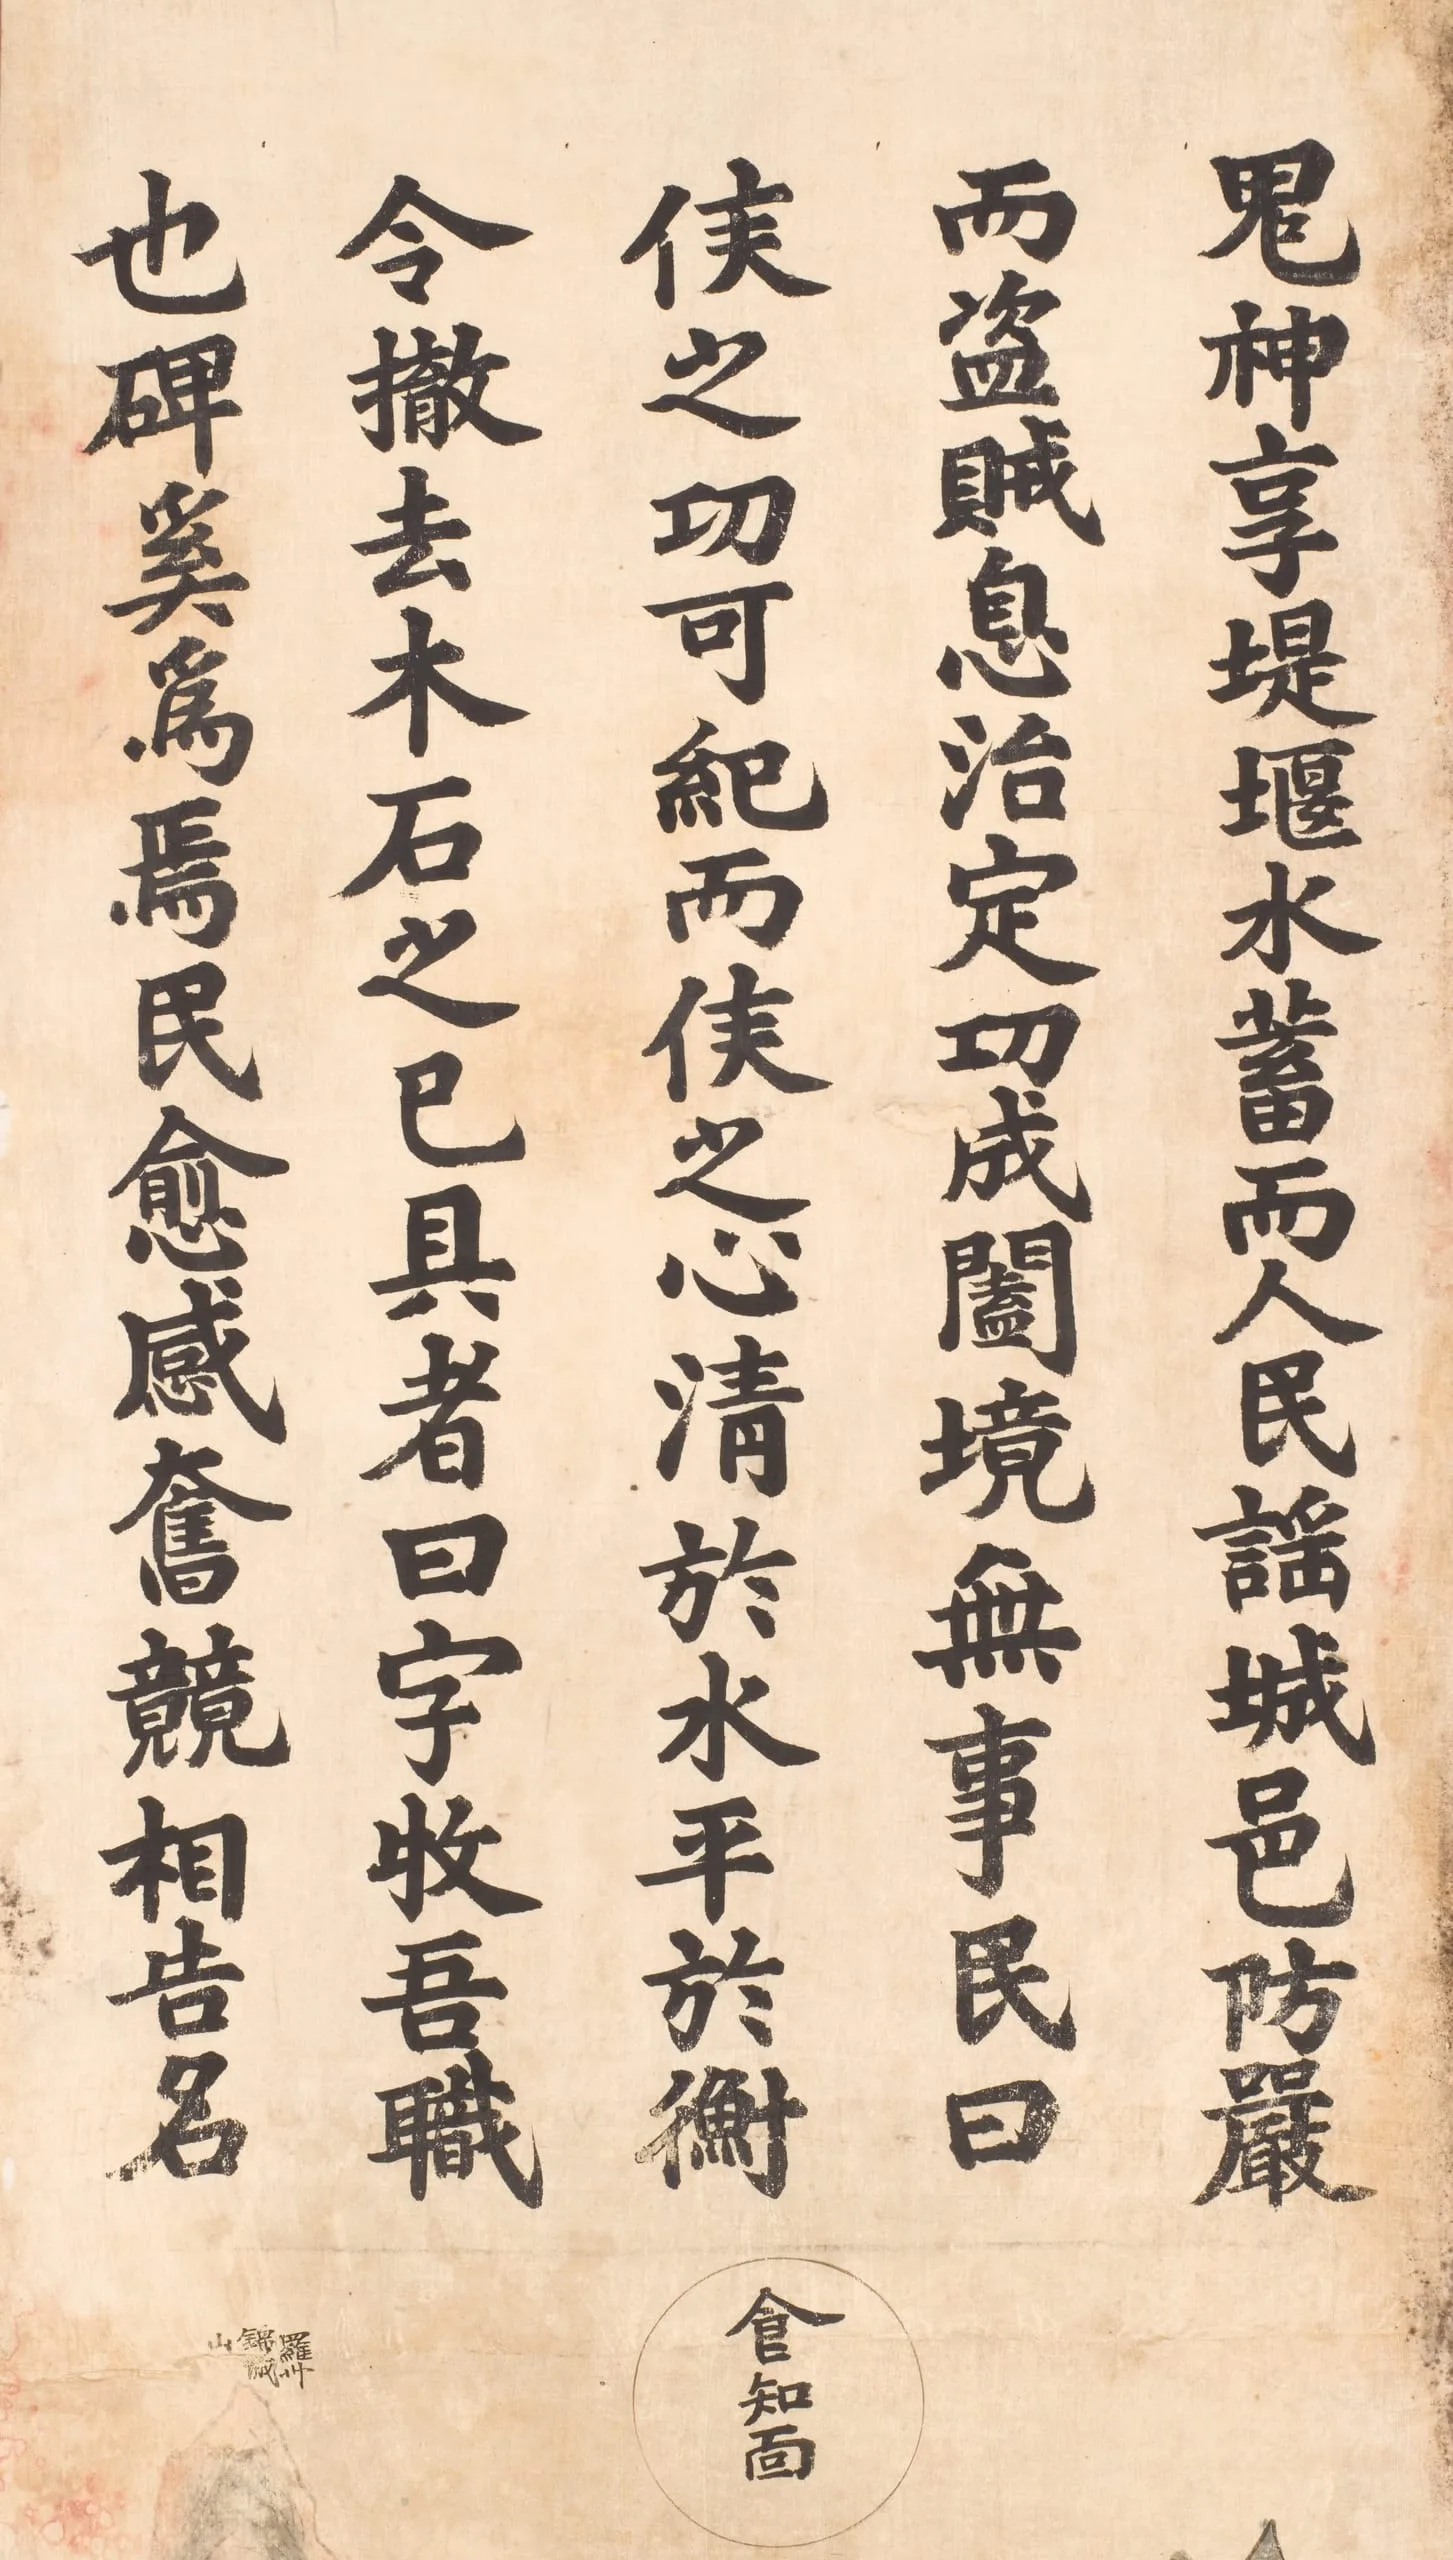 鬼神享堤堰水蓄而人民謡城邑防嚴
而盗賊息治定功成闔境無事民曰
侯之功可紀而侯之心清於水平於衡
令撤去木石之已具者曰字牧吾職
也碑奚爲焉民愈感奮競相告名
食知面
羅州
錦城
山